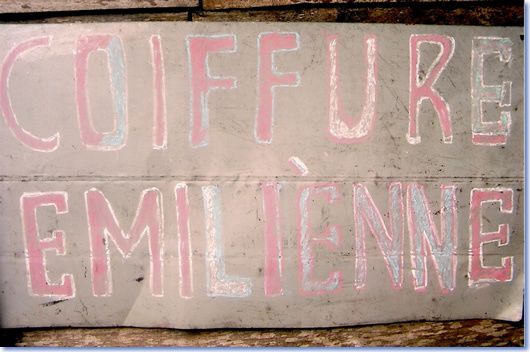 COIFFURE
EMILIÈNNE